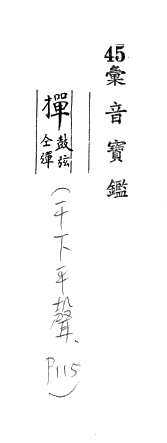 45彙音寶鑑
撣 鼓弦
仝彈
(干下平聲、P115)